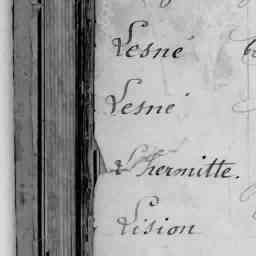 Lesné
Lesné
L'hermitte.
Lision